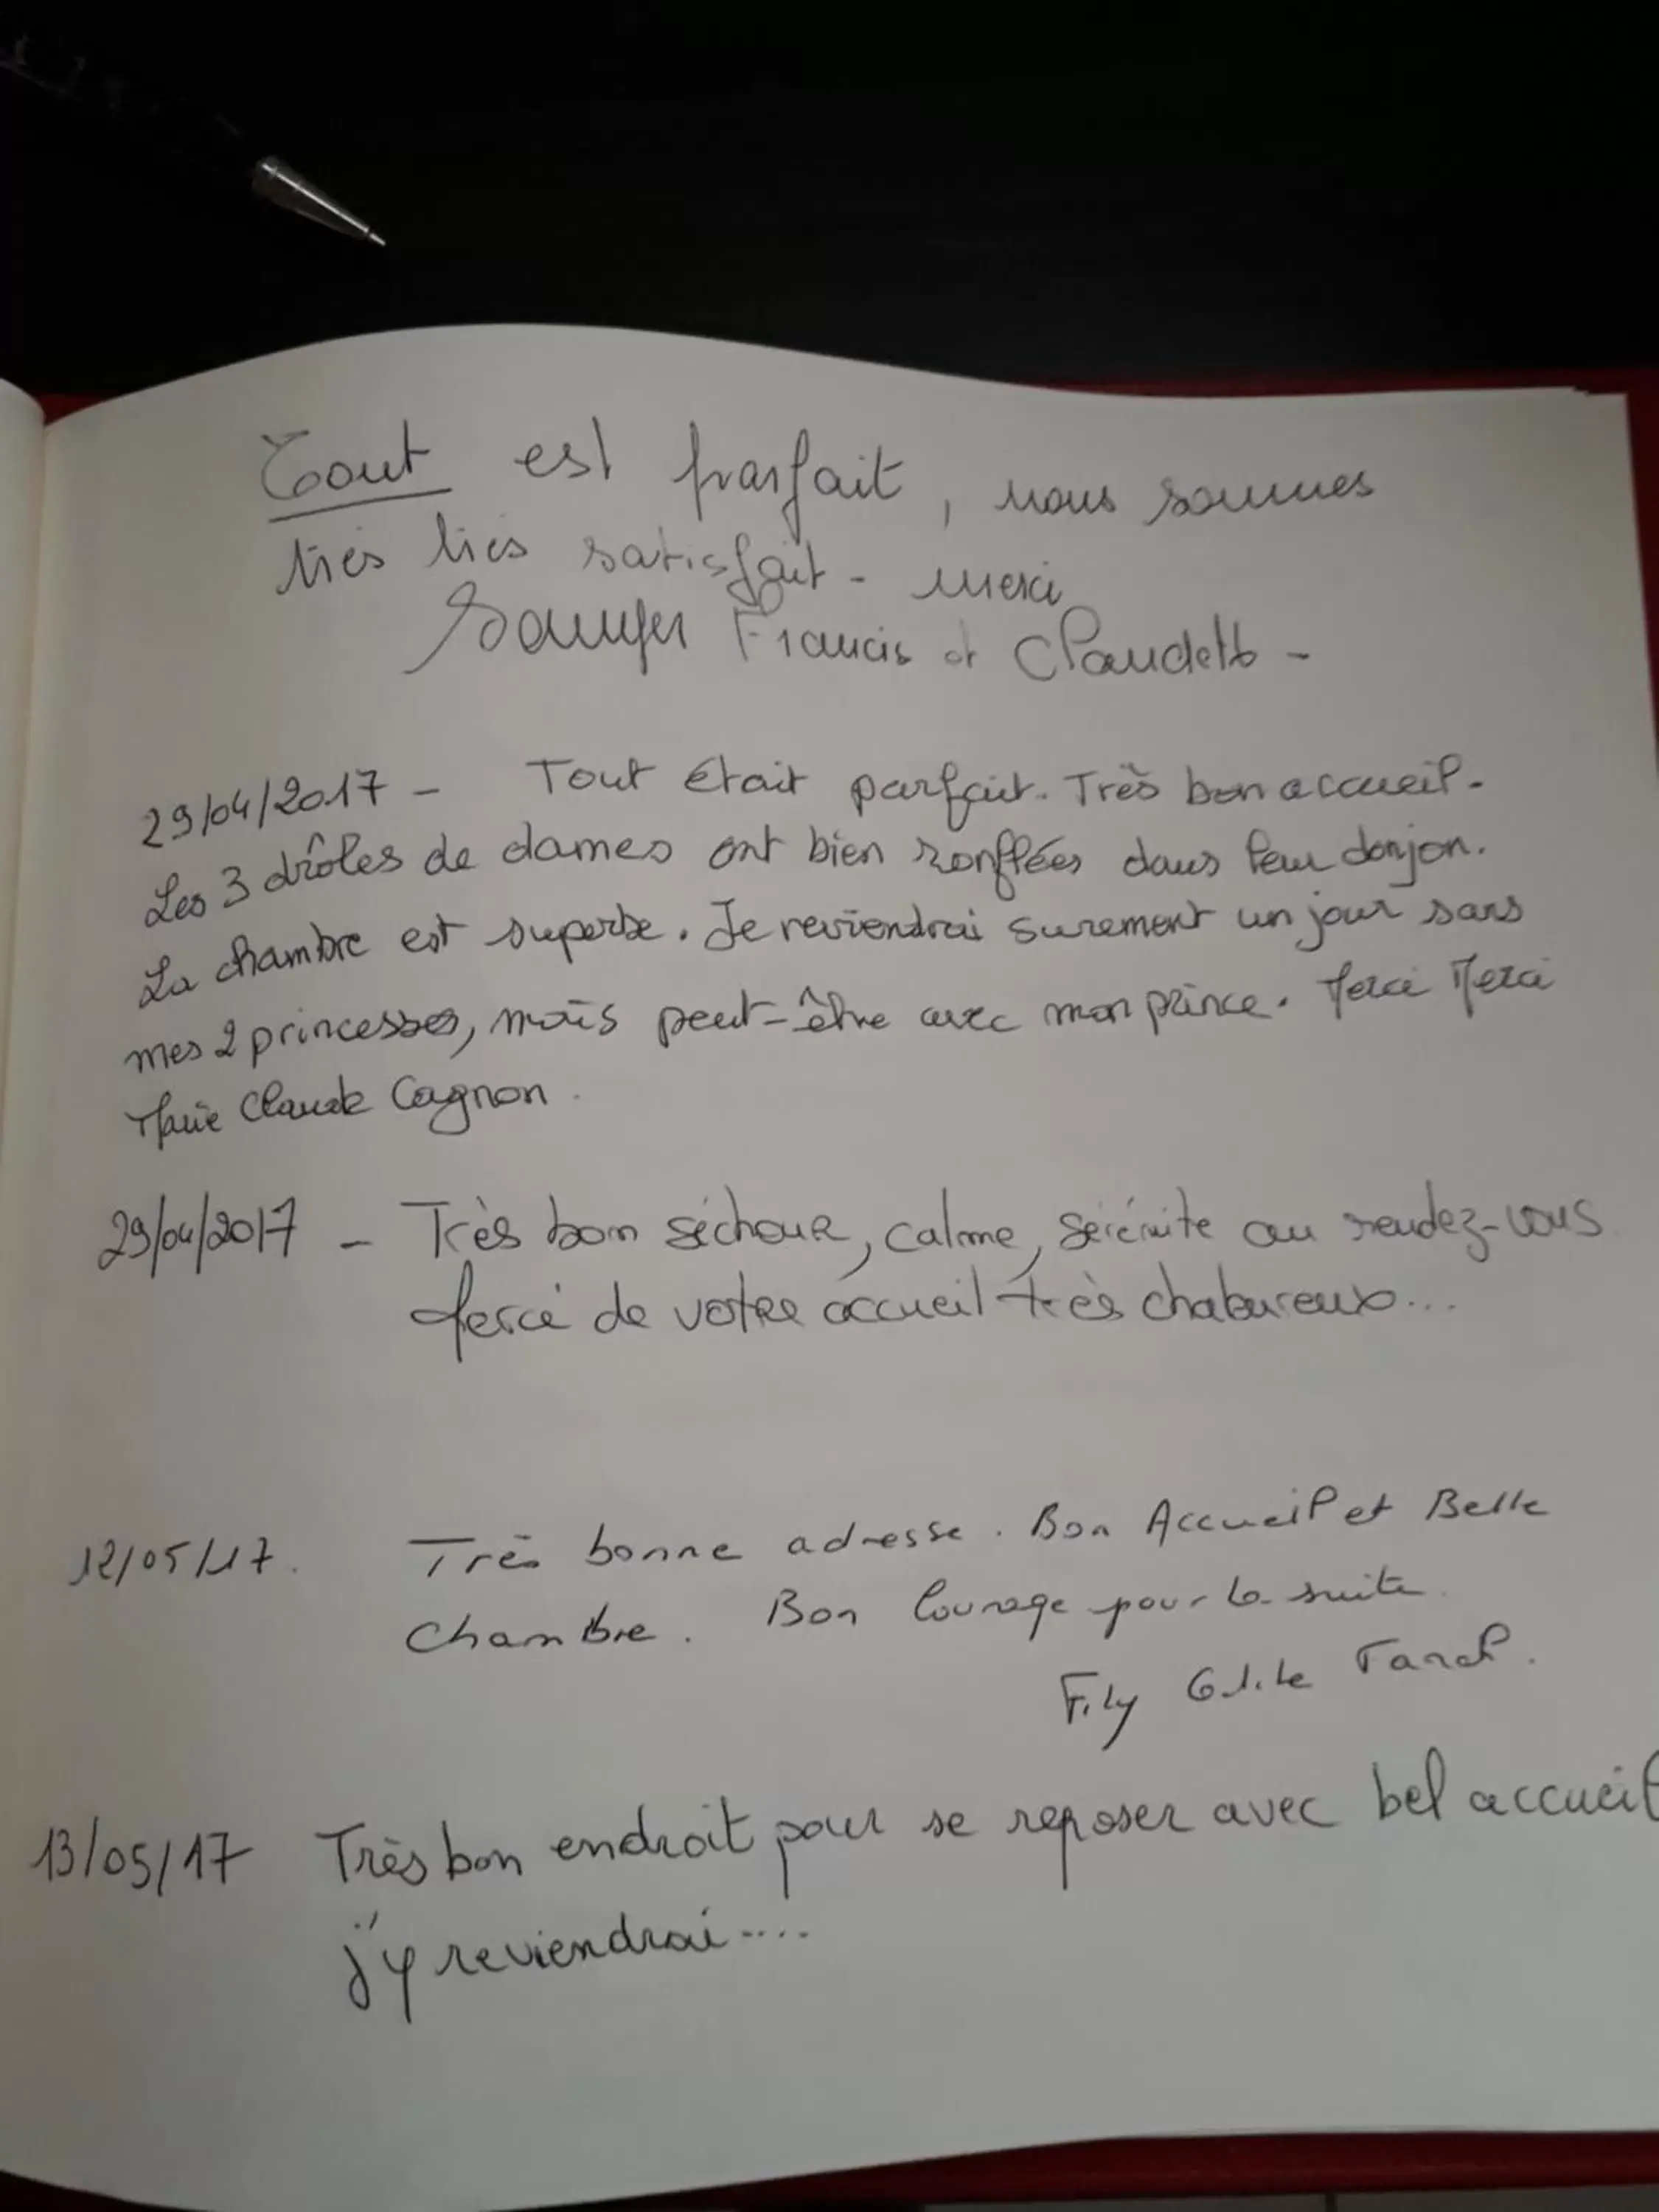 Tout est parfait, nous sommes
très très satisfait - merci
Francis et Claudette -
29/04/2017 - Tout était parfait. Très bon accueil.
Les 3 drôles de dames ont bien ronflées dans leur donjon.
La chambre est superbe. Je reviendrai surement un jour sans
mes 2 princesses, mais peut-être avec mon prince. Merci Merci
Marie Claude Gagnon.
29/04/2017 - Très bon séchour, calme, sérénite au rendez-vous
Merci de votre accueil très chaleureux...
12/05/17. Très bonne adresse. Bon Accueil et Belle
Chambre. Bon Courage pour la suite.
Fily
13/05/17 Très bon endroit pour se reposer avec bel accueil
j'y reviendrai....